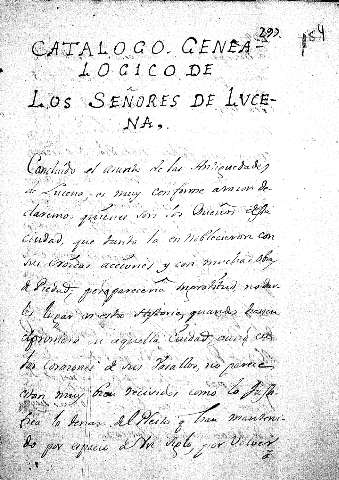 293. 154
CATALOGO GENEA-
LOGICO DE
LOS SEÑORES DE LUCE-
NA,
Concluido el asunto de las Antiguedades
de Lucena, es muy conforme a razon de-
claremos quienes son los Dueños desta
Ciudad, que tanto la ennoblecieron con
sus eroicas acciones y con muchas obras
de Piedad, pues pareceria ingratitud no dar-
les lugar en esta Historia, quando
en aquella Ciudad, aun en
los corazones de sus Vasallos, no parece
muy bien recividos como lo
la del Pleito que han manteni-
do por espacio de Siglo, por